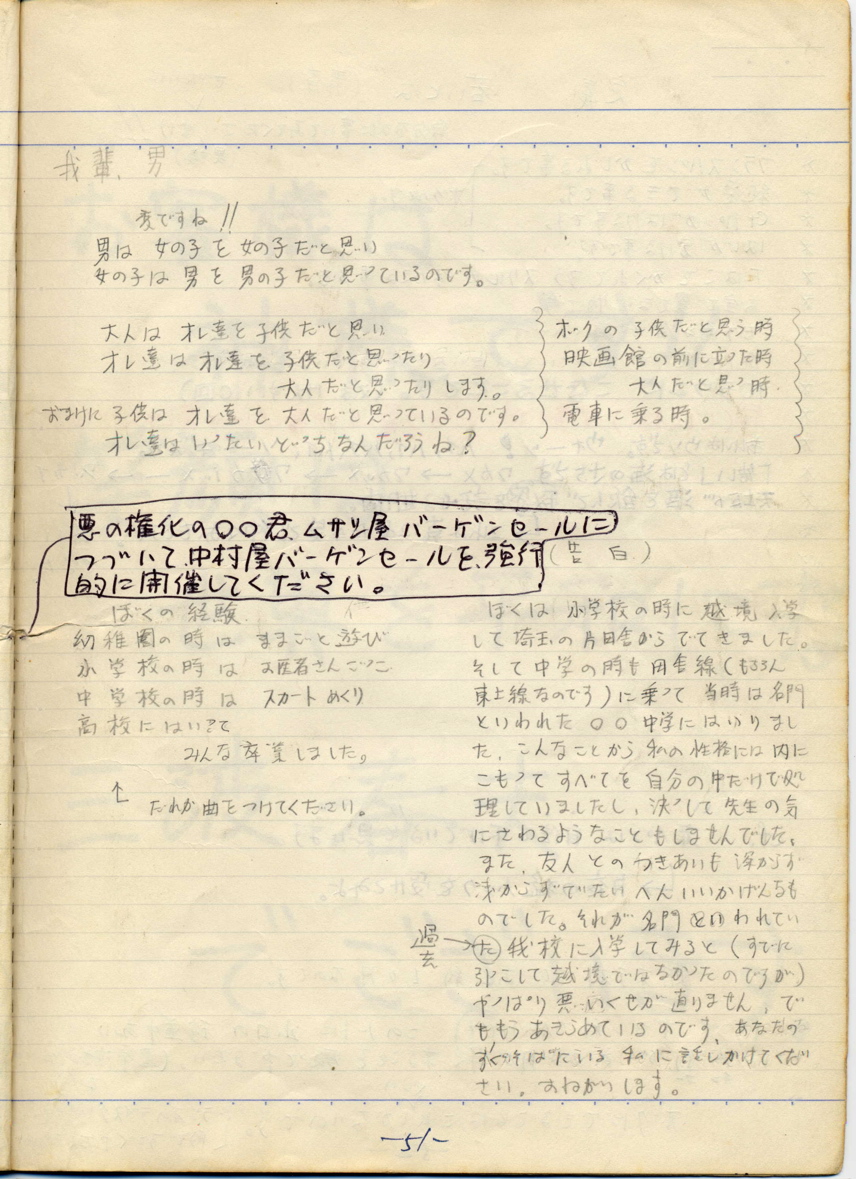 我輩、男
変ですね!!
男は 女の子を女の子だと思い
女の子は 男を 男の子だと思っているのです。
大人は オレ達を子供だと思い
オレ達は オレ達を 子供だと思ったり
大人だと思ったりします。
おまけに 子供は オレ達を 大人だと思っているのです。
オレ達はいったいどっちなんだろうね?
ボクの子供だと思う時
映画館の前に立った時
大人だと思う時.
電車に乗る時。
悪の権化の○○君、ムサシ屋 バーゲンセールに
つづいて、中村屋バーゲンセールを、強行
的に開催してください。
ぼくの経験
幼稚園の時は ままごと遊び
小学校の時は お医者さんごっこ
中学校の時は スカートめくり
高校にはいって
みんな卒業しました。
↑
だれか曲をつけてください。
(告白)
ぼくは 小学校の時に 越境入学
して埼玉の片田舎からでてきました。
そして中学の時も田舎線(もちろん
東上線なのです)に乗って 当時は名門
といわれた ○○ 中学にはいりまし
た、こんなことから私の性格には内に
こもってすべてを自分の中だけで処
理していましたし、決して先生の気
にさわるようなこともしませんでした。
また、友人とのつきあいも深からず
浅からずでたいへんいいかげんなも
のでした。それが名門と言われてい
過去→た 我校に入学してみると(すでに
引こして越境ではなかったのですが)
やっぱり悪いくせが直りません、で
ももうあきらめているのです、あなたの
すぐそばにいる 私に話しかけてくだ
さい。おねがいします。
-51-